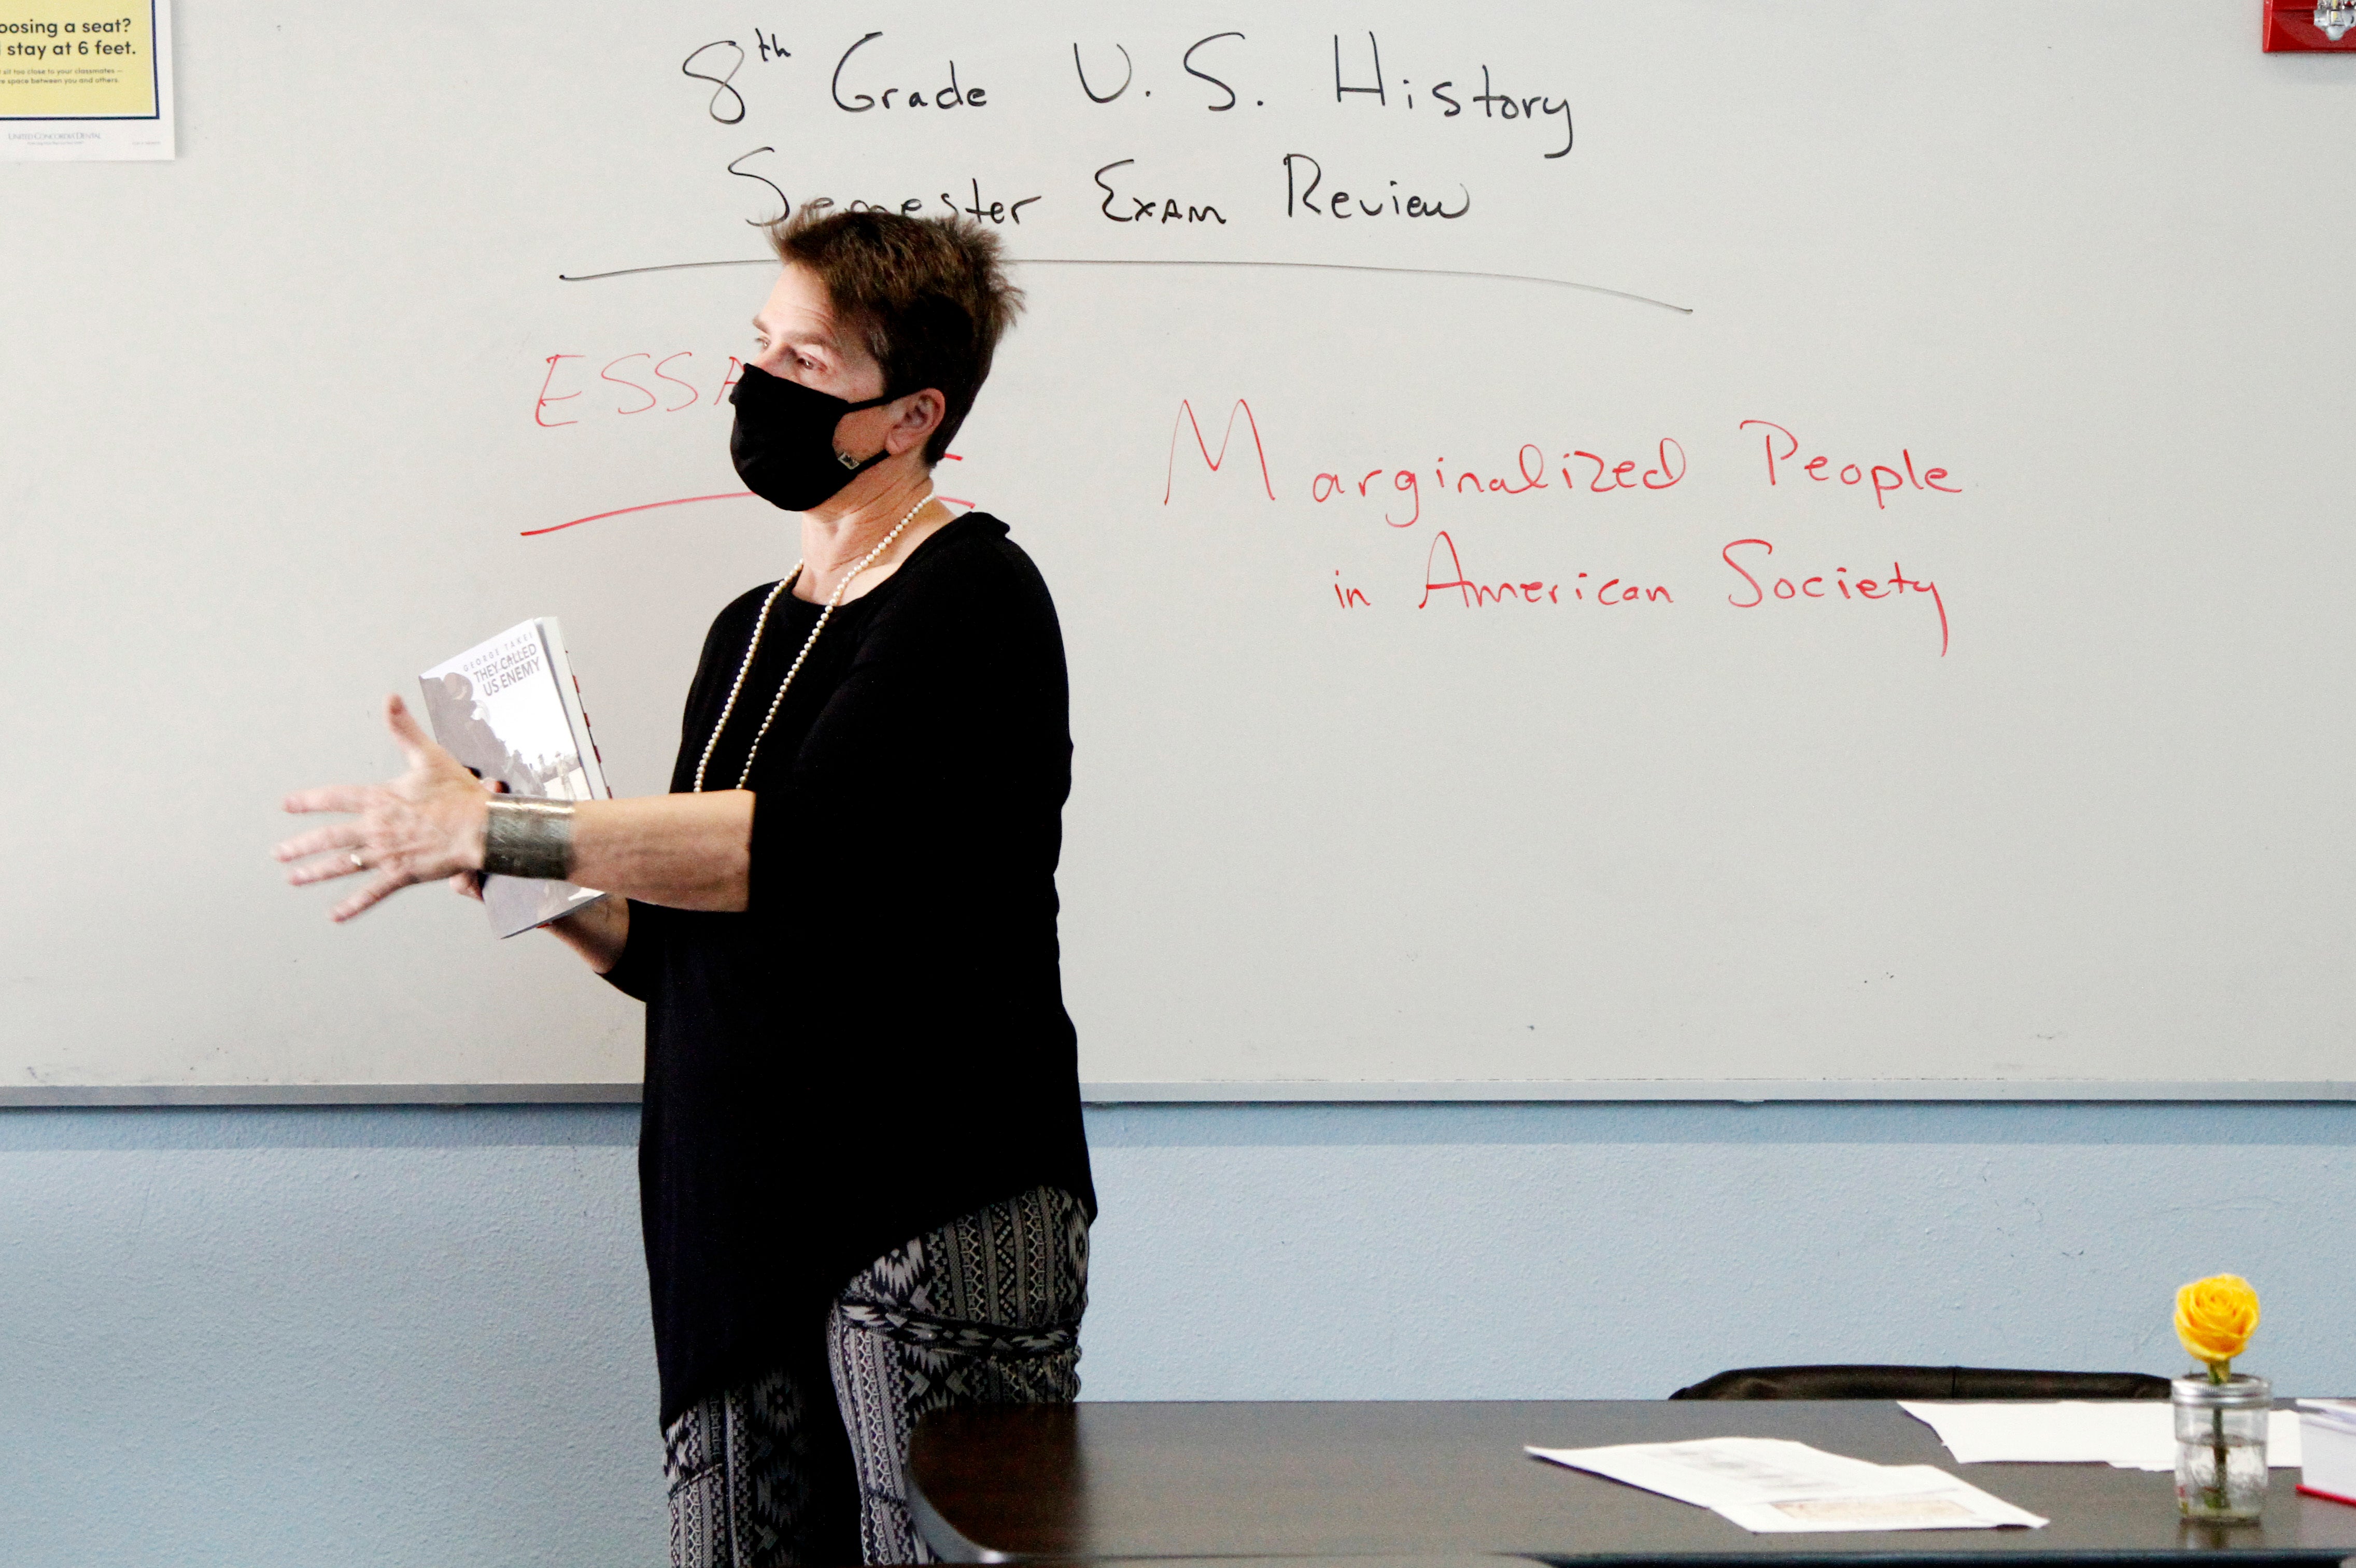 oosing a seat?
stay at 6 feet.
sit too close to your classmates —
space between you and others.
UNITED CONCORDIA DENTAL
8th Grade U.S. History
Semester Exam Review
ESSA
Marginalized People
in American Society
GEORGE TAKEI
THEY CALLED
US ENEMY